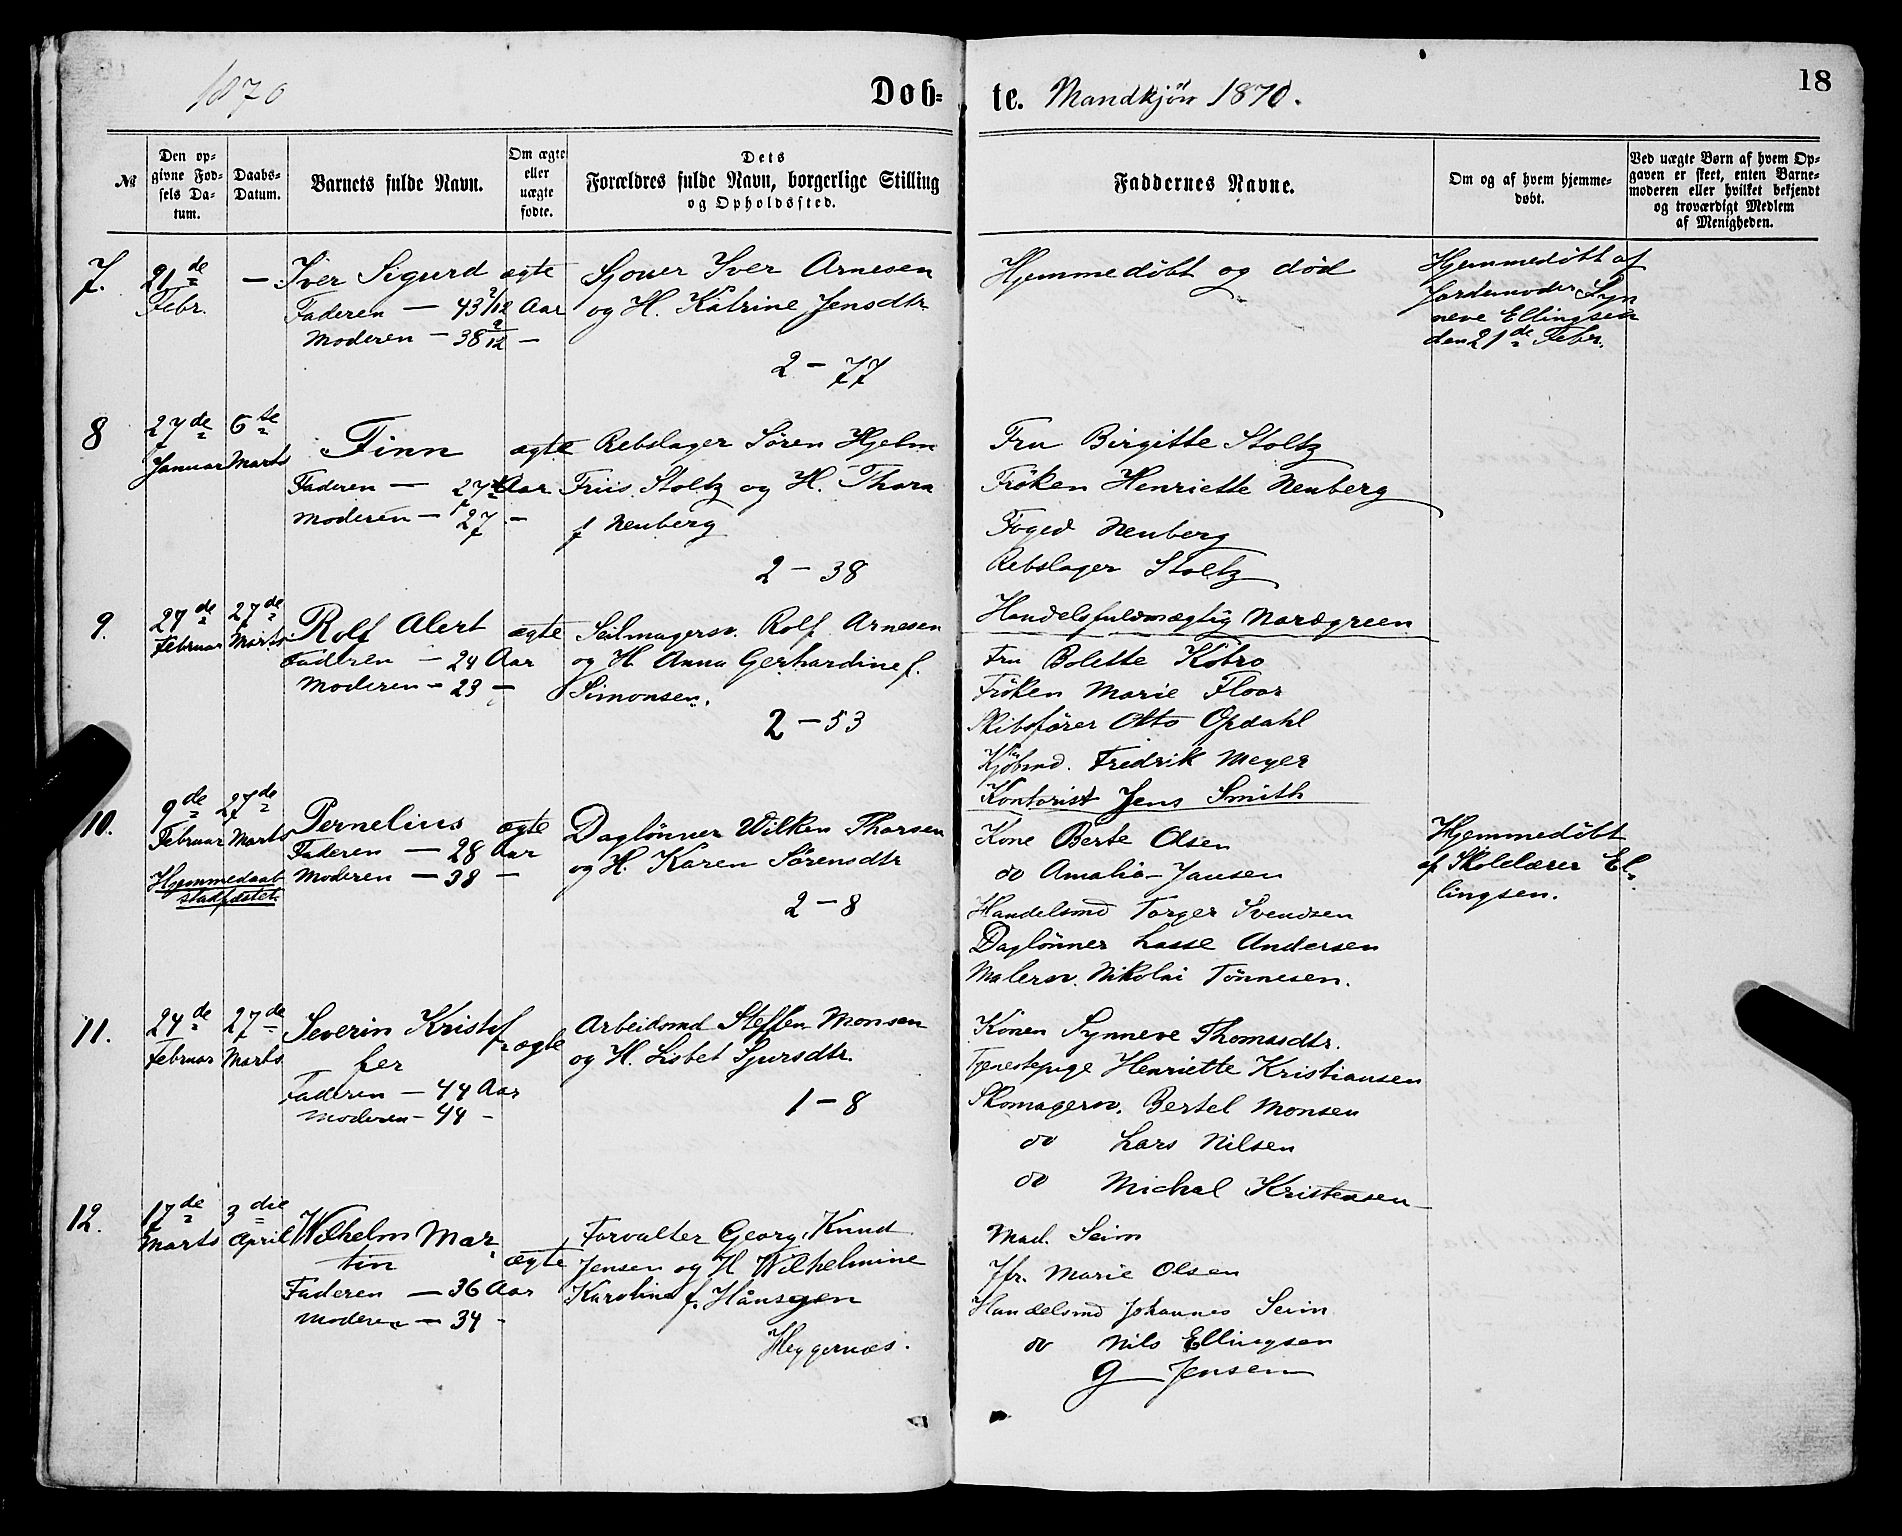 1870
Døb-
te. Mandkjøn 1870.
18
№
Den op-
givne Fød-
sels Da-
tum.
Daabs-
Datum.
Barnets fulde Navn.
Om ægte
eller
uægte
fødte.
Dets
Forældres fulde Navn, borgerlige Stilling
og Opholdssted.
Faddernes Navne.
Om og af hvem hjemme-
døbt.
Ved uægte Børn af hvem Op-
gaven er skeet, enten Barne-
moderen eller hvilket bekjendt
og troværdigt Medlem
af Menigheden.
7.
21de
Febr.
—
Iver Sigurd
Faderen — 43 2/12 Aar
Moderen — 38 2/12 —
ægte
Sjouer Iver Arnesen
og H. Katrine Jensdtr.
2 — 77
Hjemmedøbt og død
Hjemmedøbt af
Jordemoder Syn
neve Ellingsen
den 21de Febr.
8
27de
Januar
6te
Marts
Finn
Faderen — 27 Aar
Moderen — 27 —
ægte
Rebslager Søren Hjelm
Friis Stoltz og H. Thora
f Neuberg
2 — 38
Fru Birgitte Stoltz
Frøken Henriette Neuberg
Foged Neuberg
Rebslager Stoltz
Handelsfuldmægtig Nordgreen
9.
27de
Februar
27de
Marts
Rolf Alert
Faderen — 24 Aar
Moderen — 23 —
ægte
Seilmagersv. Rolf Arnesen
og H Anna Gerhardine f.
Simonsen.
2 — 53
Fru Bolette Kobro
Frøken Marie Floor
Skibsfører Otto Opdahl
Kjøbmd. Fredrik Meyer
Kontorist Jens Smith
10.
9de
Februar
27de
Marts
Hjemmedaab
stadfæstet.
Pernelius
Faderen — 28 Aar
Moderen — 38 —
ægte
Daglønner Wilken Thorsen
og H. Karen Sørensdtr
2 — 8
Kone Berte Olsen
do Amalia Jansen
Handelsmd Torger Svendsen
Daglønner Lasse Andersen
Malersv. Nikolai Tønnesen.
Hjemmedøbt
af Skolelærer El-
lingsen.
11.
24de
Februar
27de
Marts
Severin Kristof
fer
Faderen — 44 Aar
Moderen — 44 —
ægte
Arbeidsmd Steffen Monsen
og H. Lisbet Sjursdtr.
1 — 8
Konen Synneve Thomasdtr.
Tjenestepige Henriette Kristiansen
Skomagersv. Bertel Monsen
do Lars Nilsen
do Michal Kristensen
12.
17de
Marts
3die
April
Wilhelm Mar
tin
Faderen — 36 Aar
Moderen — 34 —
ægte
Forvalter Georg Knud
Jensen og H Wilhelmine
Karoline f. Hånsgen
Heggernæs.
Mad. Seim
Jfr. Marie Olsen
Handelsmd Johannes Seim
do Nils Ellingsen
G Jensen